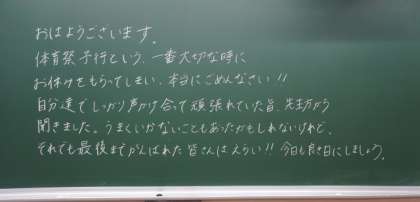 おはようございます。
体育祭予行という、一番大切な時に
お休みをもらってしまい、本当にごめんなさい!!
自分達でしっかり声かけ合って頑張れていた旨、先生方から
聞きました。うまくいかないこともあったかもしれないけれど、
それでも最後までがんばれた皆さんはえらい!! 今日も良き日にしましょう。